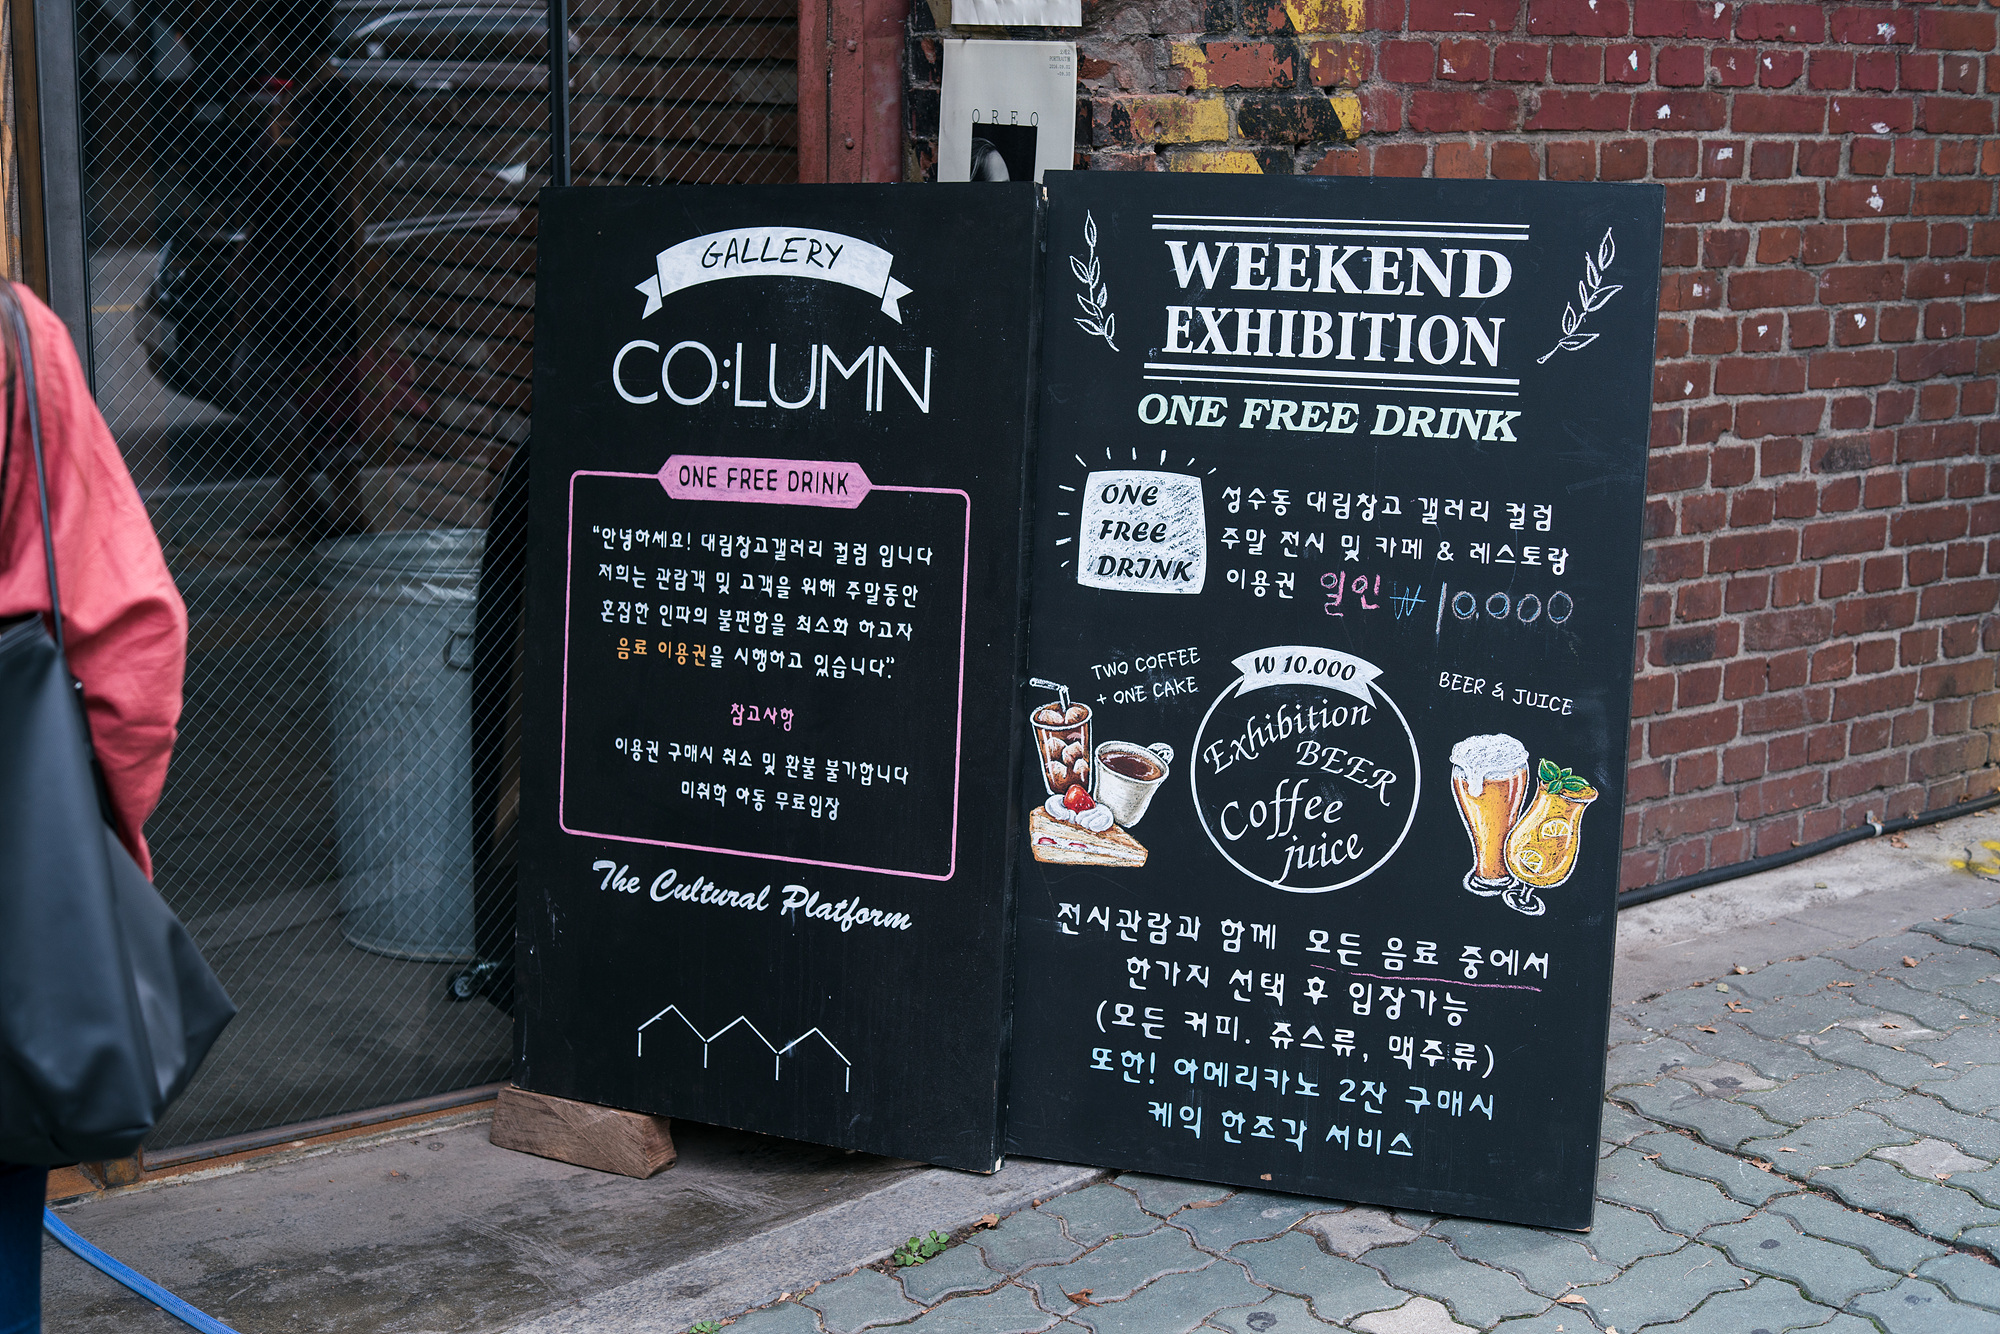 OREO
GALLERY
CO:LUMN
ONE FREE DRINK
“안녕하세요! 대림창고갤러리 컬럼 입니다
저희는 관람객 및 고객을 위해 주말동안
혼잡한 인파의 불편함을 최소화 하고자
음료 이용권을 시행하고 있습니다”.
참고사항
이용권 구매시 취소 및 환불 불가합니다
미취학 아동 무료입장
The Cultural Platform
WEEKEND
EXHIBITION
ONE FREE DRINK
ONE
FREE
DRINK
성수동 대림창고 갤러리 컬럼
주말 전시 및 카페 & 레스토랑
이용권 일인 ₩10,000
TWO COFFEE
+ ONE CAKE
₩ 10.000
Exhibition
BEER
Coffee
juice
BEER & JUICE
전시관람과 함께 모든 음료 중에서
한가지 선택 후 입장가능
(모든 커피. 쥬스류, 맥주류)
또한! 아메리카노 2잔 구매시
케익 한조각 서비스